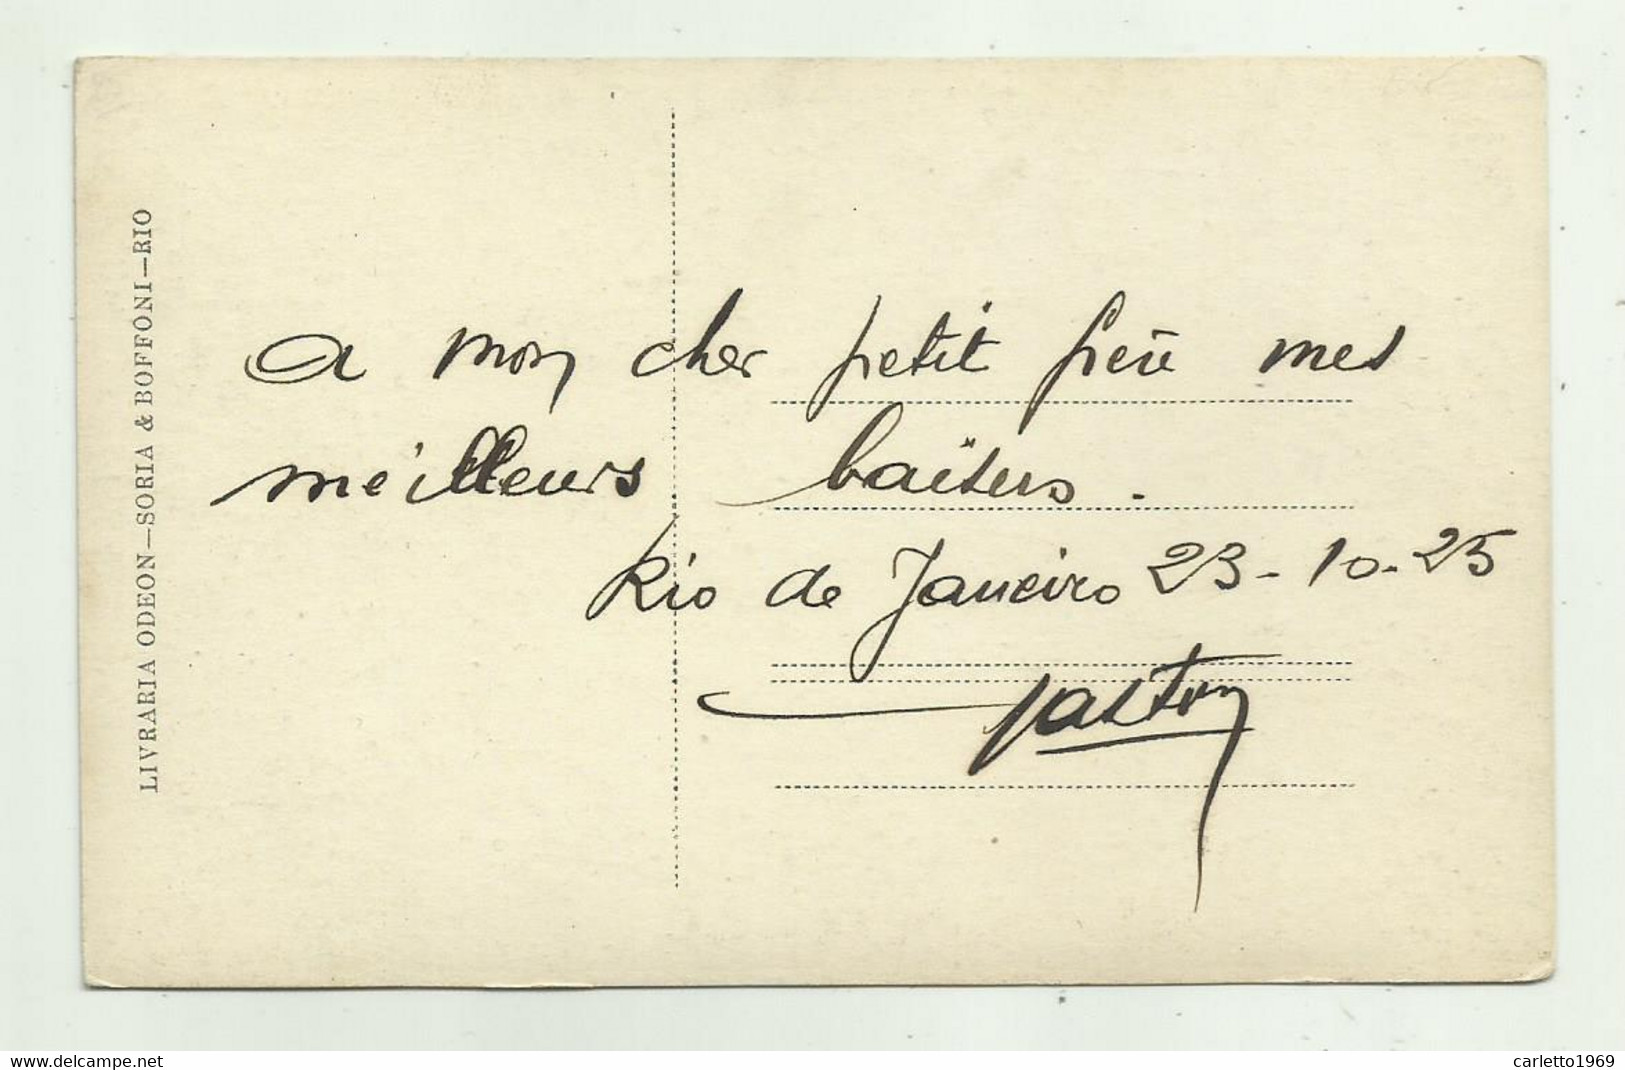 LIVRARIA ODEON—SORIA & BOFFONI—RIO
a mon cher petit frère mes
meilleurs baisers.
Rio de Janeiro 23-10-25
Gaston
www.delcampe.net
carletto1969